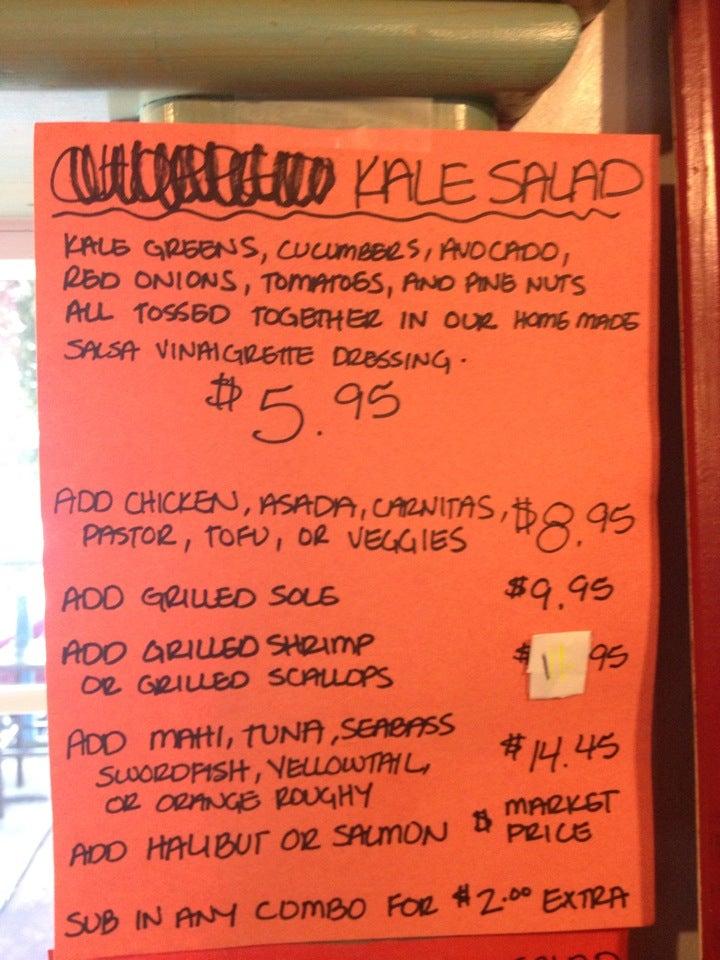 KALE SALAD
KALE GREENS, CUCUMBERS, AVOCADO,
RED ONIONS, TOMATOES, AND PINE NUTS
ALL TOSSED TOGETHER IN OUR HOME MADE
SALSA VINAIGRETTE DRESSING.
$5.95
ADD CHICKEN, ASADA, CARNITAS, $8.95
PASTOR, TOFU, OR VEGGIES
ADD GRILLED SOLE $9.95
ADD GRILLED SHRIMP $ 95
OR GRILLED SCALLOPS
ADD MAHI, TUNA, SEABASS $14.45
SWORDFISH, YELLOWTAIL,
OR ORANGE ROUGHY
ADD HALIBUT OR SALMON $ MARKET PRICE
SUB IN ANY COMBO FOR $2.00 EXTRA